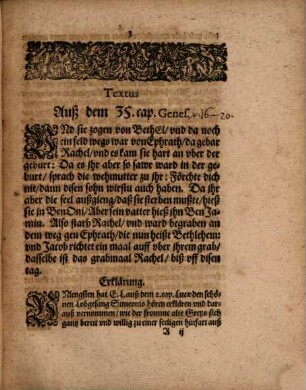 3
Textus
Auß dem 35. cap. Genes. v. 16-20.
VNd sie zogen von BethEl/ vnd da noch
ein feld wegs war von Ephrath/ da gebar
Rachel/ vnd es kam sie hart an vber der
geburt: Da es ihr aber so sawr ward in der ge-
burt/ sprach die wehmutter zu ihr: Förchte dich
nit/ dann disen sohn wirstu auch haben. Da ihr
aber die seel außgieng/ daß sie sterben mußte/ hieß
sie in BenOni/ Aber sein vatter hieß ihn Ben Ja-
min. Also starb Rachel/ vnd ward begraben an
dem weg gen Ephrath/ die nun heißt Bethlehem:
vnd Jacob richtet ein maal auff vber ihrem grab/
dasselbe ist das grabmaal Rachel/ biß vff disen
tag.
Erklärung.
VNlengsten hat E. L. auß dem 2. cap. Luc. den schö-
nen Lobgesang Simeonis hören erklären vnd dar-
auß vernommen/ wie der fromme alte Greyß sich
gantz bereit vnd willig zu einer seeligen hinfart auß
A ij